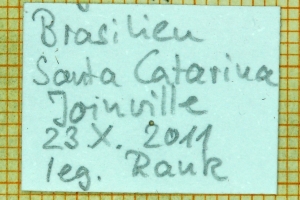 Brasilien
Santa Catarina
Joinville
23 X. 2011
leg. Rank